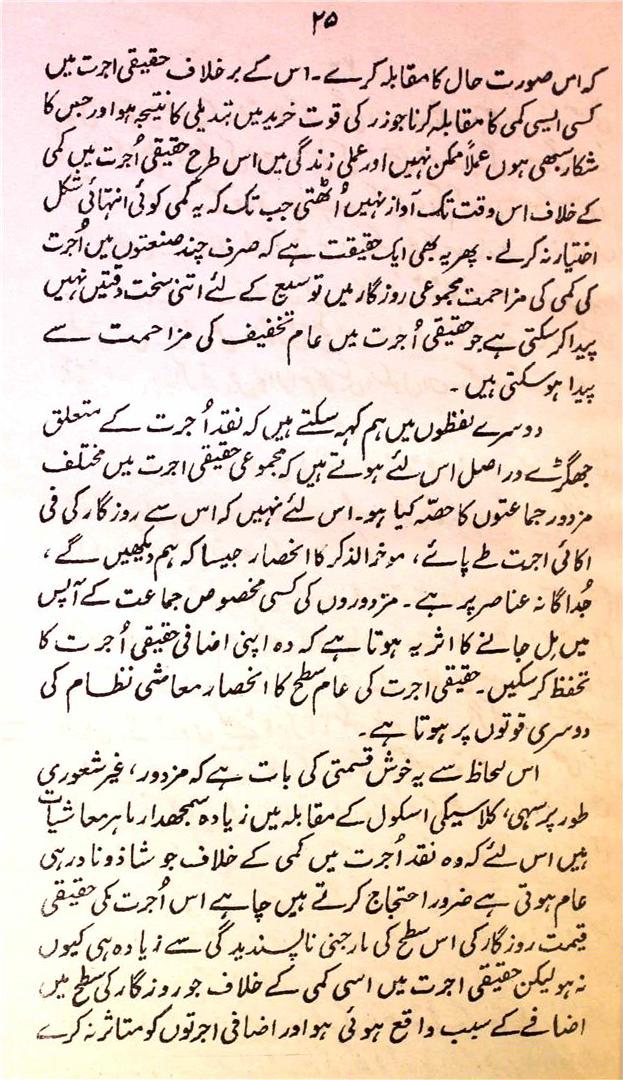 ۲۵
کہ اس صورت حال کا مقابلہ کرے۔ اس کے برخلاف حقیقی اجرت میں
کسی ایسی کمی کا مقابلہ کرنا جو زر کی قوت خرید میں تبدیلی کا نتیجہ ہو اور جس کا
شکار سبھی ہوں عملاً ممکن نہیں اور عملی زندگی میں اس طرح حقیقی اُجرت میں کمی
کے خلاف اس وقت تک آواز نہیں اُٹھتی جب تک کہ یہ کمی کوئی انتہائی شکل
اختیار نہ کر لے۔ پھر یہ بھی ایک حقیقت ہے کہ صرف چند صنعتوں میں اُجرت
کی کمی کی مزاحمت مجموعی روزگار میں توسیع کے لئے اتنی سخت دقتیں نہیں
پیدا کر سکتی ہے جو حقیقی اُجرت میں عام تخفیف کی مزاحمت سے
پیدا ہو سکتی ہیں۔
دوسرے لفظوں میں ہم کہہ سکتے ہیں کہ نقد اُجرت کے متعلق
جھگڑے دراصل اس لئے ہوتے ہیں کہ مجموعی حقیقی اجرت میں مختلف
مزدور جماعتوں کا حصّہ کیا ہو۔ اس لئے نہیں کہ اس سے روزگار کی فی
اکائی اجرت طے پائے، موخرالذکر کا انحصار جیسا کہ ہم دیکھیں گے،
جُداگانہ عناصر پر ہے۔ مزدوروں کی کسی مخصوص جماعت کے آپس
میں مِل جانے کا اثر یہ ہوتا ہے کہ وہ اپنی اضافی حقیقی اُجرت کا
تحفظ کر سکیں۔ حقیقی اجرت کی عام سطح کا انحصار معاشی نظام کی
دوسری قوتوں پر ہوتا ہے۔
اس لحاظ سے یہ خوش قسمتی کی بات ہے کہ مزدور، غیر شعوری
طور پر سہی، کلاسیکی اسکول کے مقابلہ میں زیادہ سمجھدار ماہر معاشیات
ہیں اس لئے کہ وہ نقد اُجرت میں کمی کے خلاف جو شاذ و نادر ہی
عام ہوتی ہے ضرور احتجاج کرتے ہیں چاہے اس اُجرت کی حقیقی
قیمت روزگار کی اس سطح کی مارجنی ناپسندیدگی سے زیادہ ہی کیوں
نہ ہو لیکن حقیقی اجرت میں اسی کمی کے خلاف جو روزگار کی سطح میں
اضافے کے سبب واقع ہوئی ہو اور اضافی اجرتوں کو متاثر نہ کرے